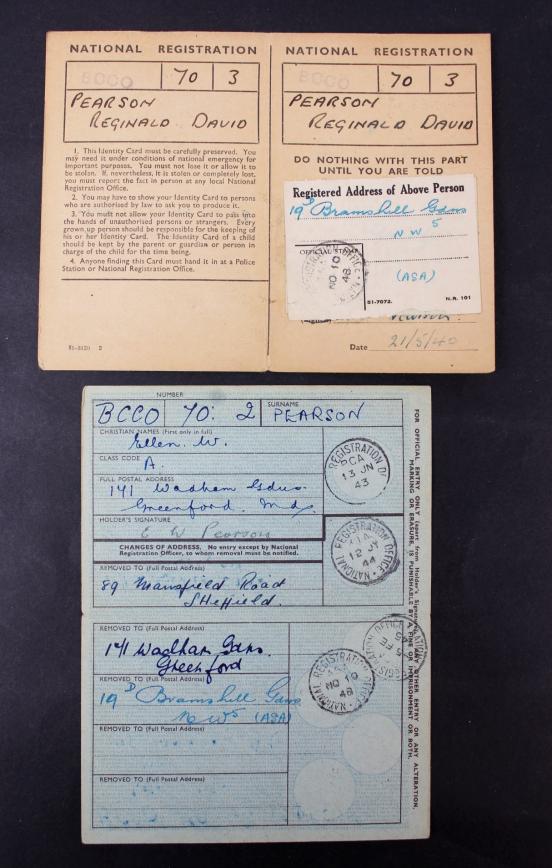 NATIONAL REGISTRATION
BCCO 70 3
PEARSON
REGINALD DAVID
1. This Identity Card must be carefully preserved. You
may need it under conditions of national emergency for
important purposes. You must not lose it or allow it to
be stolen. If, nevertheless, it is stolen or completely lost,
you must report the fact in person at any local National
Registration Office.
2. You may have to show your Identity Card to persons
who are authorised by law to ask you to produce it.
3. You must not allow your Identity Card to pass into
the hands of unauthorised persons or strangers. Every
grown up person should be responsible for the keeping of
his or her Identity Card. The Identity Card of a child
should be kept by the parent or guardian or person in
charge of the child for the time being.
4. Anyone finding this Card must hand it in at a Police
Station or National Registration Office.
NATIONAL REGISTRATION
BCCO 70 3
PEARSON
REGINALD DAVID
DO NOTHING WITH THIS PART
UNTIL YOU ARE TOLD
Registered Address of Above Person
19D Bramshill Gdns
NW5
OFFICIAL STAMP
(ASA)
51-7072. N.R. 101
Date 21/5/40
NUMBER SURNAME
BCCO 70: 2 PEARSON
CHRISTIAN NAMES (First only in full)
Ellen. W.
CLASS CODE
A.
FULL POSTAL ADDRESS
141 Wadham Gdns.
Greenford. Mdx.
HOLDER'S SIGNATURE
E W Pearson
CHANGES OF ADDRESS. No entry except by National
Registration Officer, to whom removal must be notified.
REMOVED TO (Full Postal Address)
89 Mansfield Road
Sheffield.
REMOVED TO (Full Postal Address)
141 Wadham Gdns.
Greenford
REMOVED TO (Full Postal Address)
19D Bramshill Gdns
NW5 (ASA)
REMOVED TO (Full Postal Address)
REMOVED TO (Full Postal Address)
REGISTRATION
13 JN
43
NATIONAL REGISTRATION OFFICE
12 JY
44
NATIONAL REGISTRATION OFFICE
NO 10
48
FOR OFFICIAL ENTRY ONLY (apart from Holder's Signature). ANY OTHER ENTRY OR ANY ALTERATION,
MARKING OR ERASURE, IS PUNISHABLE BY A FINE OR IMPRISONMENT OR BOTH.